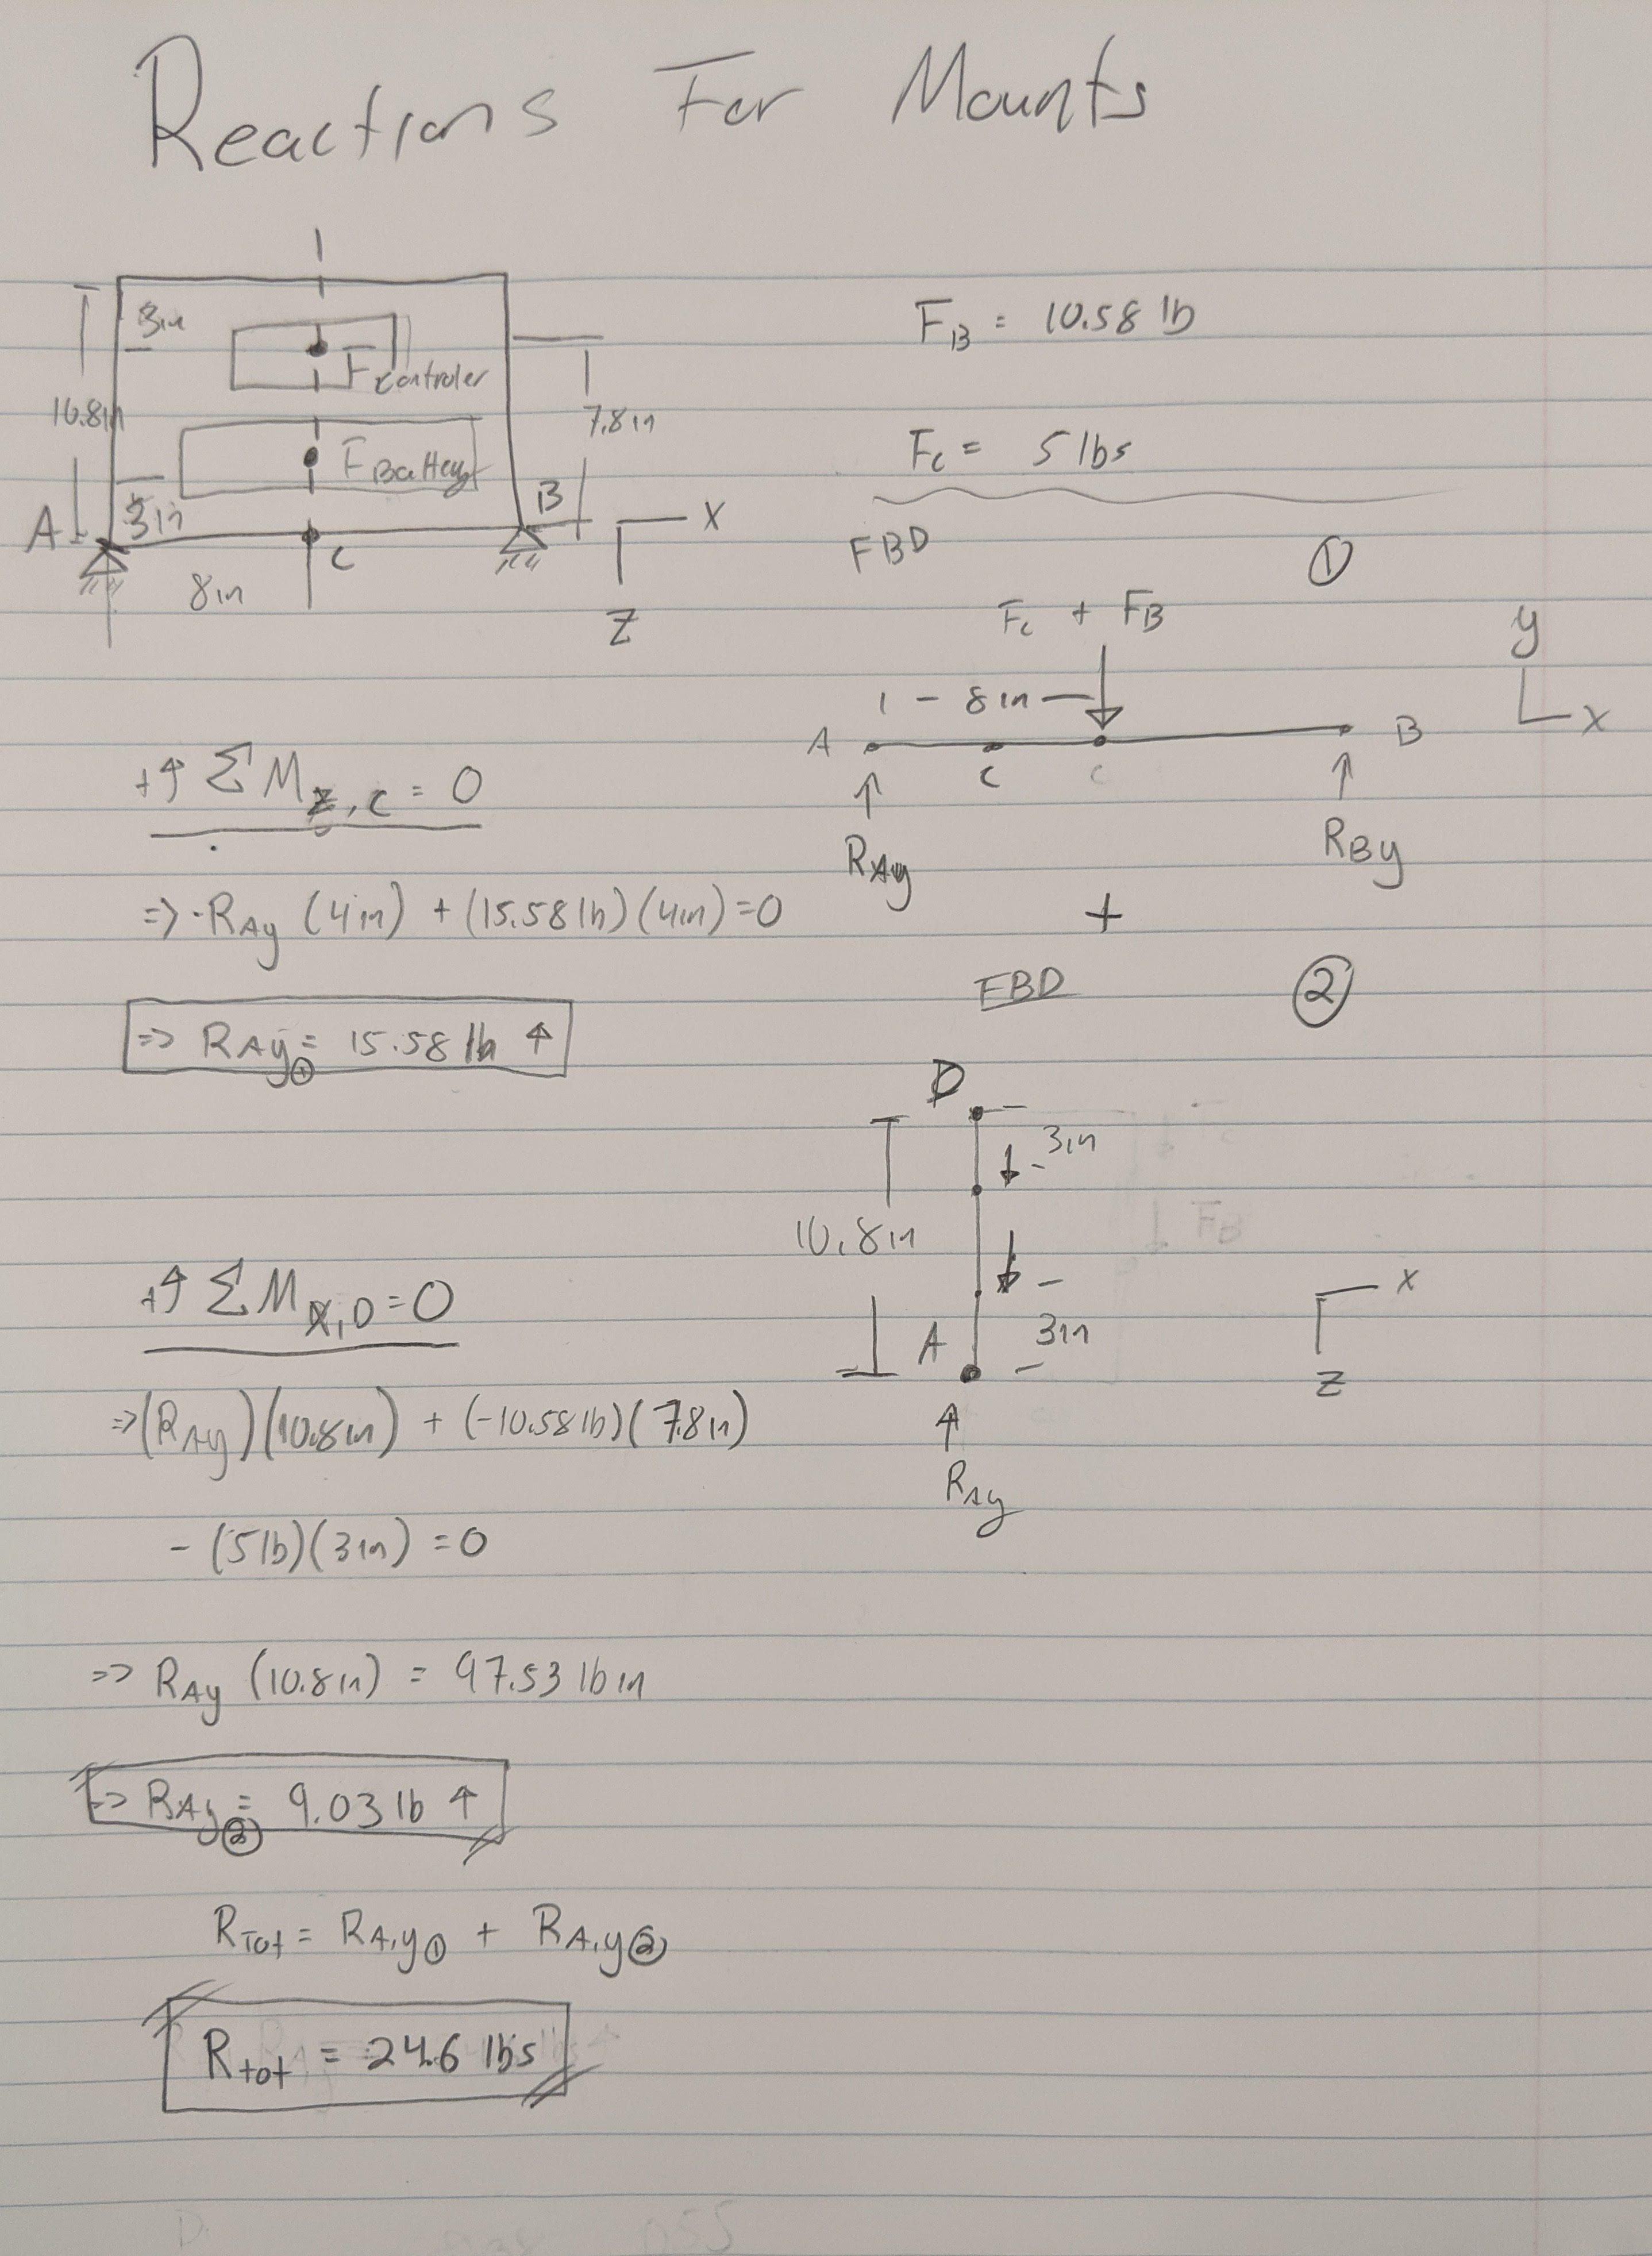 Reactions For Mounts
3in
Fcontroler
10.8in
7.8in
FBattery
3in
A
B
C
8in
X
Z
FB = 10.58 lb
Fc = 5 lbs
FBD
①
Fc + FB
8in
A
C
C
B
y
X
RAy
RBy
+↑ ΣMz,c = 0
=> -RAy (4in) + (15.58 lb)(4in) = 0
=> RAy① = 15.58 lb ↑
+
FBD
②
D
3in
10.8in
FB
3in
A
X
Z
RAy
+↑ ΣMx,D = 0
=> (RAy)(10.8in) + (-10.58 lb)(7.8in)
- (5lb)(3in) = 0
=> RAy (10.8in) = 97.53 lb in
=> RAy② = 9.03 lb ↑
RTot = RA,y① + RA,y②
Rtot = 24.6 lbs